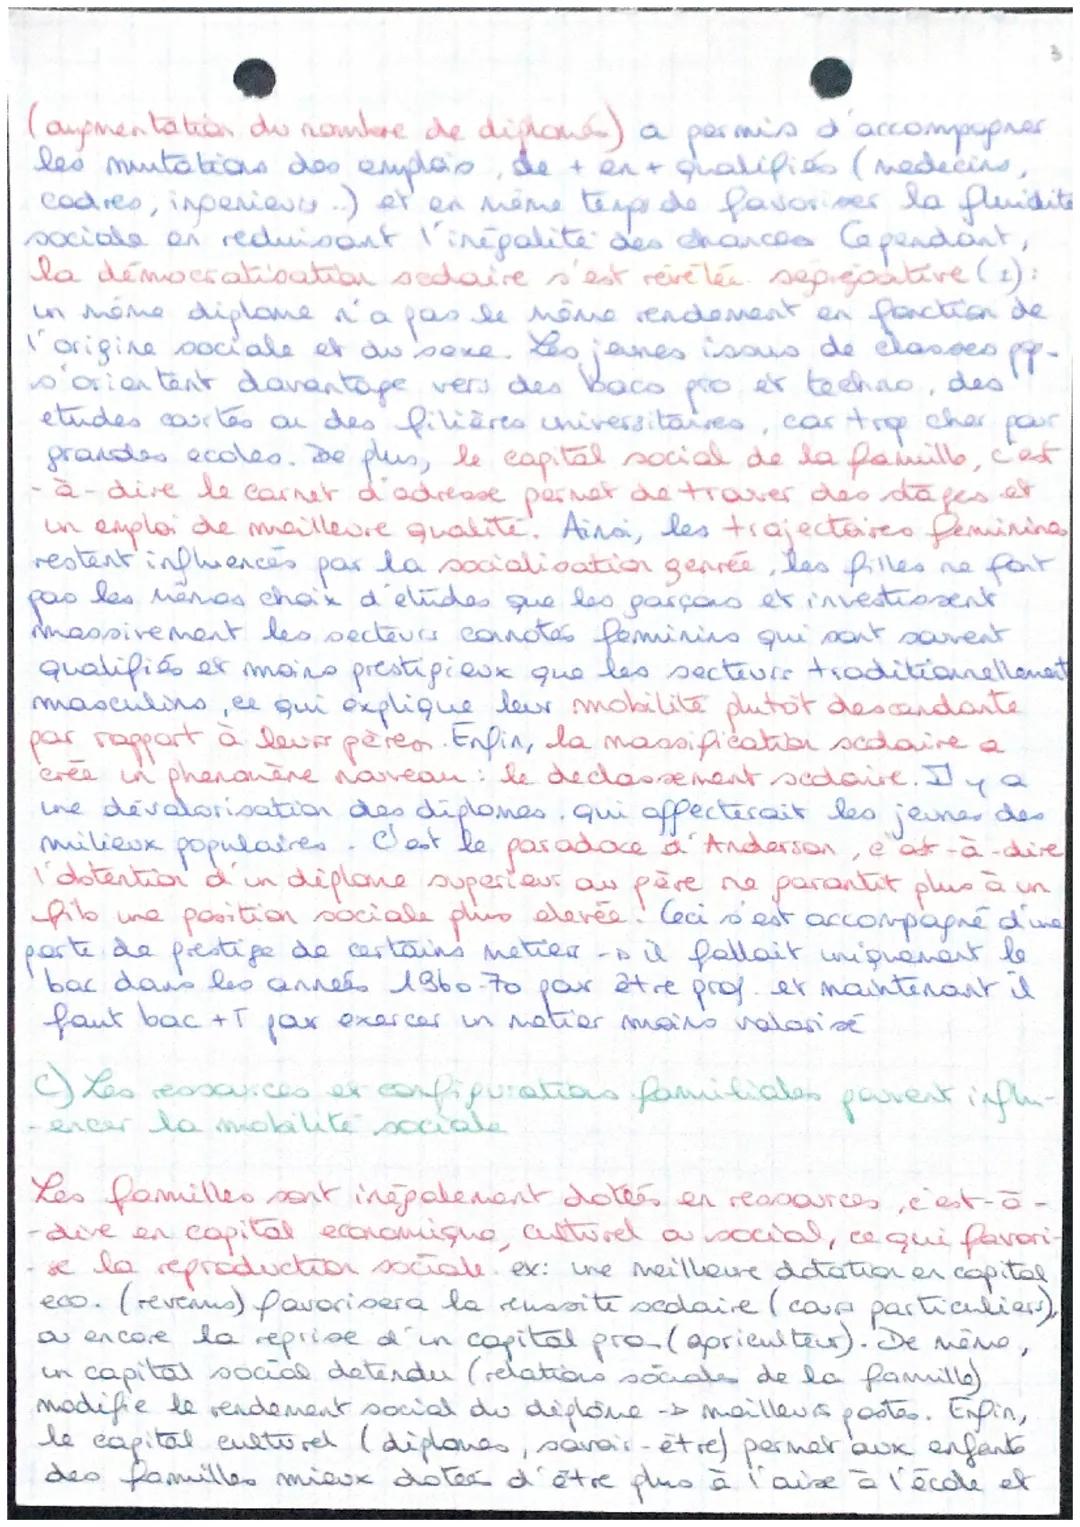 3
(augmentation du nombre de diplomés) a permis d'accompagner
les mutations des emplois, de + en + qualifiés (medecins,
cadres, ingenieurs ..) et en même temps de favoriser la fluidité
sociale en reduisant l'inégalité des chances Cependant,
la démocratisation scolaire s'est révélée ségrégative (1):
un même diplome n'a pas le même rendement en fonction de
l'origine sociale et du sexe. Les jeunes issus de classes pp-
s'orientent davantage vers des bacs pro et techno, des
etudes courtes ou des filières universitaires, car trop cher pour
grandes ecoles. De plus, le capital social de la famille, c'est
-à-dire le carnet d'adresse permet de trouver des stages et
un emploi de meilleure qualité. Ainsi, les trajectoires féminines
restent influencés par la socialisation genrée, les filles ne font
pas les mêmes choix d'études que les garçons et investissent
massivement les secteurs connotés féminins qui sont souvent
qualifiés et moins prestigieux que les secteurs traditionnellement
masculins, ce qui explique leur mobilité plutôt descendante
par rapport à leurs pères. Enfin, la massification scolaire a
crée un phenomène nouveau : le declassement scolaire. Il y a
une dévalorisation des diplomes, qui affecterait les jeunes des
milieux populaires. C'est le paradoxe d'Anderson, c'est-à-dire
l'obtention d'un diplome superieur au père ne garantit plus à un
fils une position sociale plus elevée. Ceci s'est accompagné d'une
perte de prestige de certains metier -> il fallait uniquement le
bac dans les années 1960-70 pour être prof. et maintenant il
faut bac +5 pour exercer un metier moins valorisé
c) Les ressources et configurations familiales peuvent influ-
-encer la mobilité sociale
Les familles sont inégalement dotées en ressources, c'est-à-
-dire en capital economique, culturel ou social, ce qui favori-
-se la reproduction sociale. ex: une meilleure dotation en capital
eco. (revenus) favorisera la reussite scolaire (cours particuliers),
ou encore la reprise d'un capital pro (agriculteur). De même,
un capital social detendu (relations sociales de la famille)
modifie le rendement social du diplôme -> meilleurs postes. Enfin,
le capital culturel (diplomes, savoir-être) permet aux enfants
des familles mieux dotées d'être plus à l'aise à l'école et